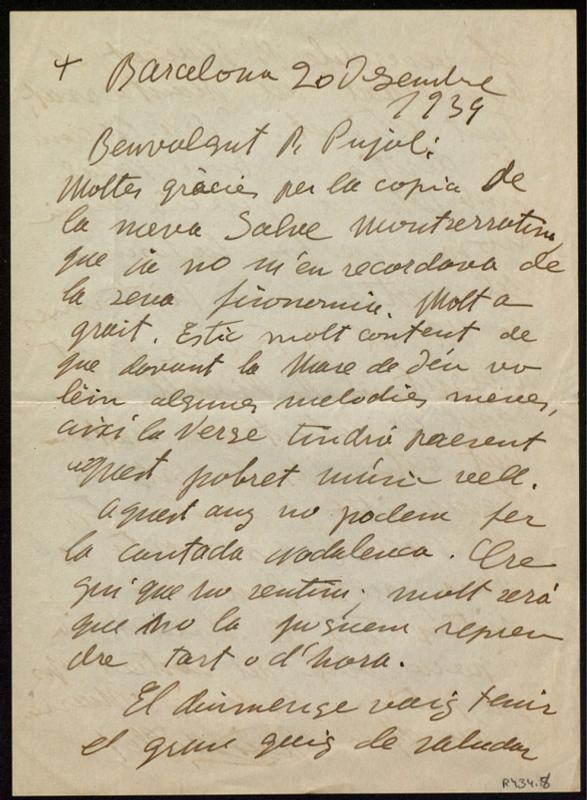 + Barcelona 20 Desembre
1939
Benvolgut P. Pujol:
Moltes gràcies per la copia de
la meva Salve Montserratina,
que ja no m'en recordava de
la seva fisonomia. Molt a
graït. Estic molt content de
que davant la Mare de Déu vo
leïn algunes melodies meves,
així la Verge tindrà present
aquest pobret músic vell.
Aquest any no podem fer
la cantada nadalenca. Cre
gui que ho sentim; molt serà
que no la poguem repren
dre tart o d'hora.
El diumenge vaig tenir
el gran goig de saludar
R434.8